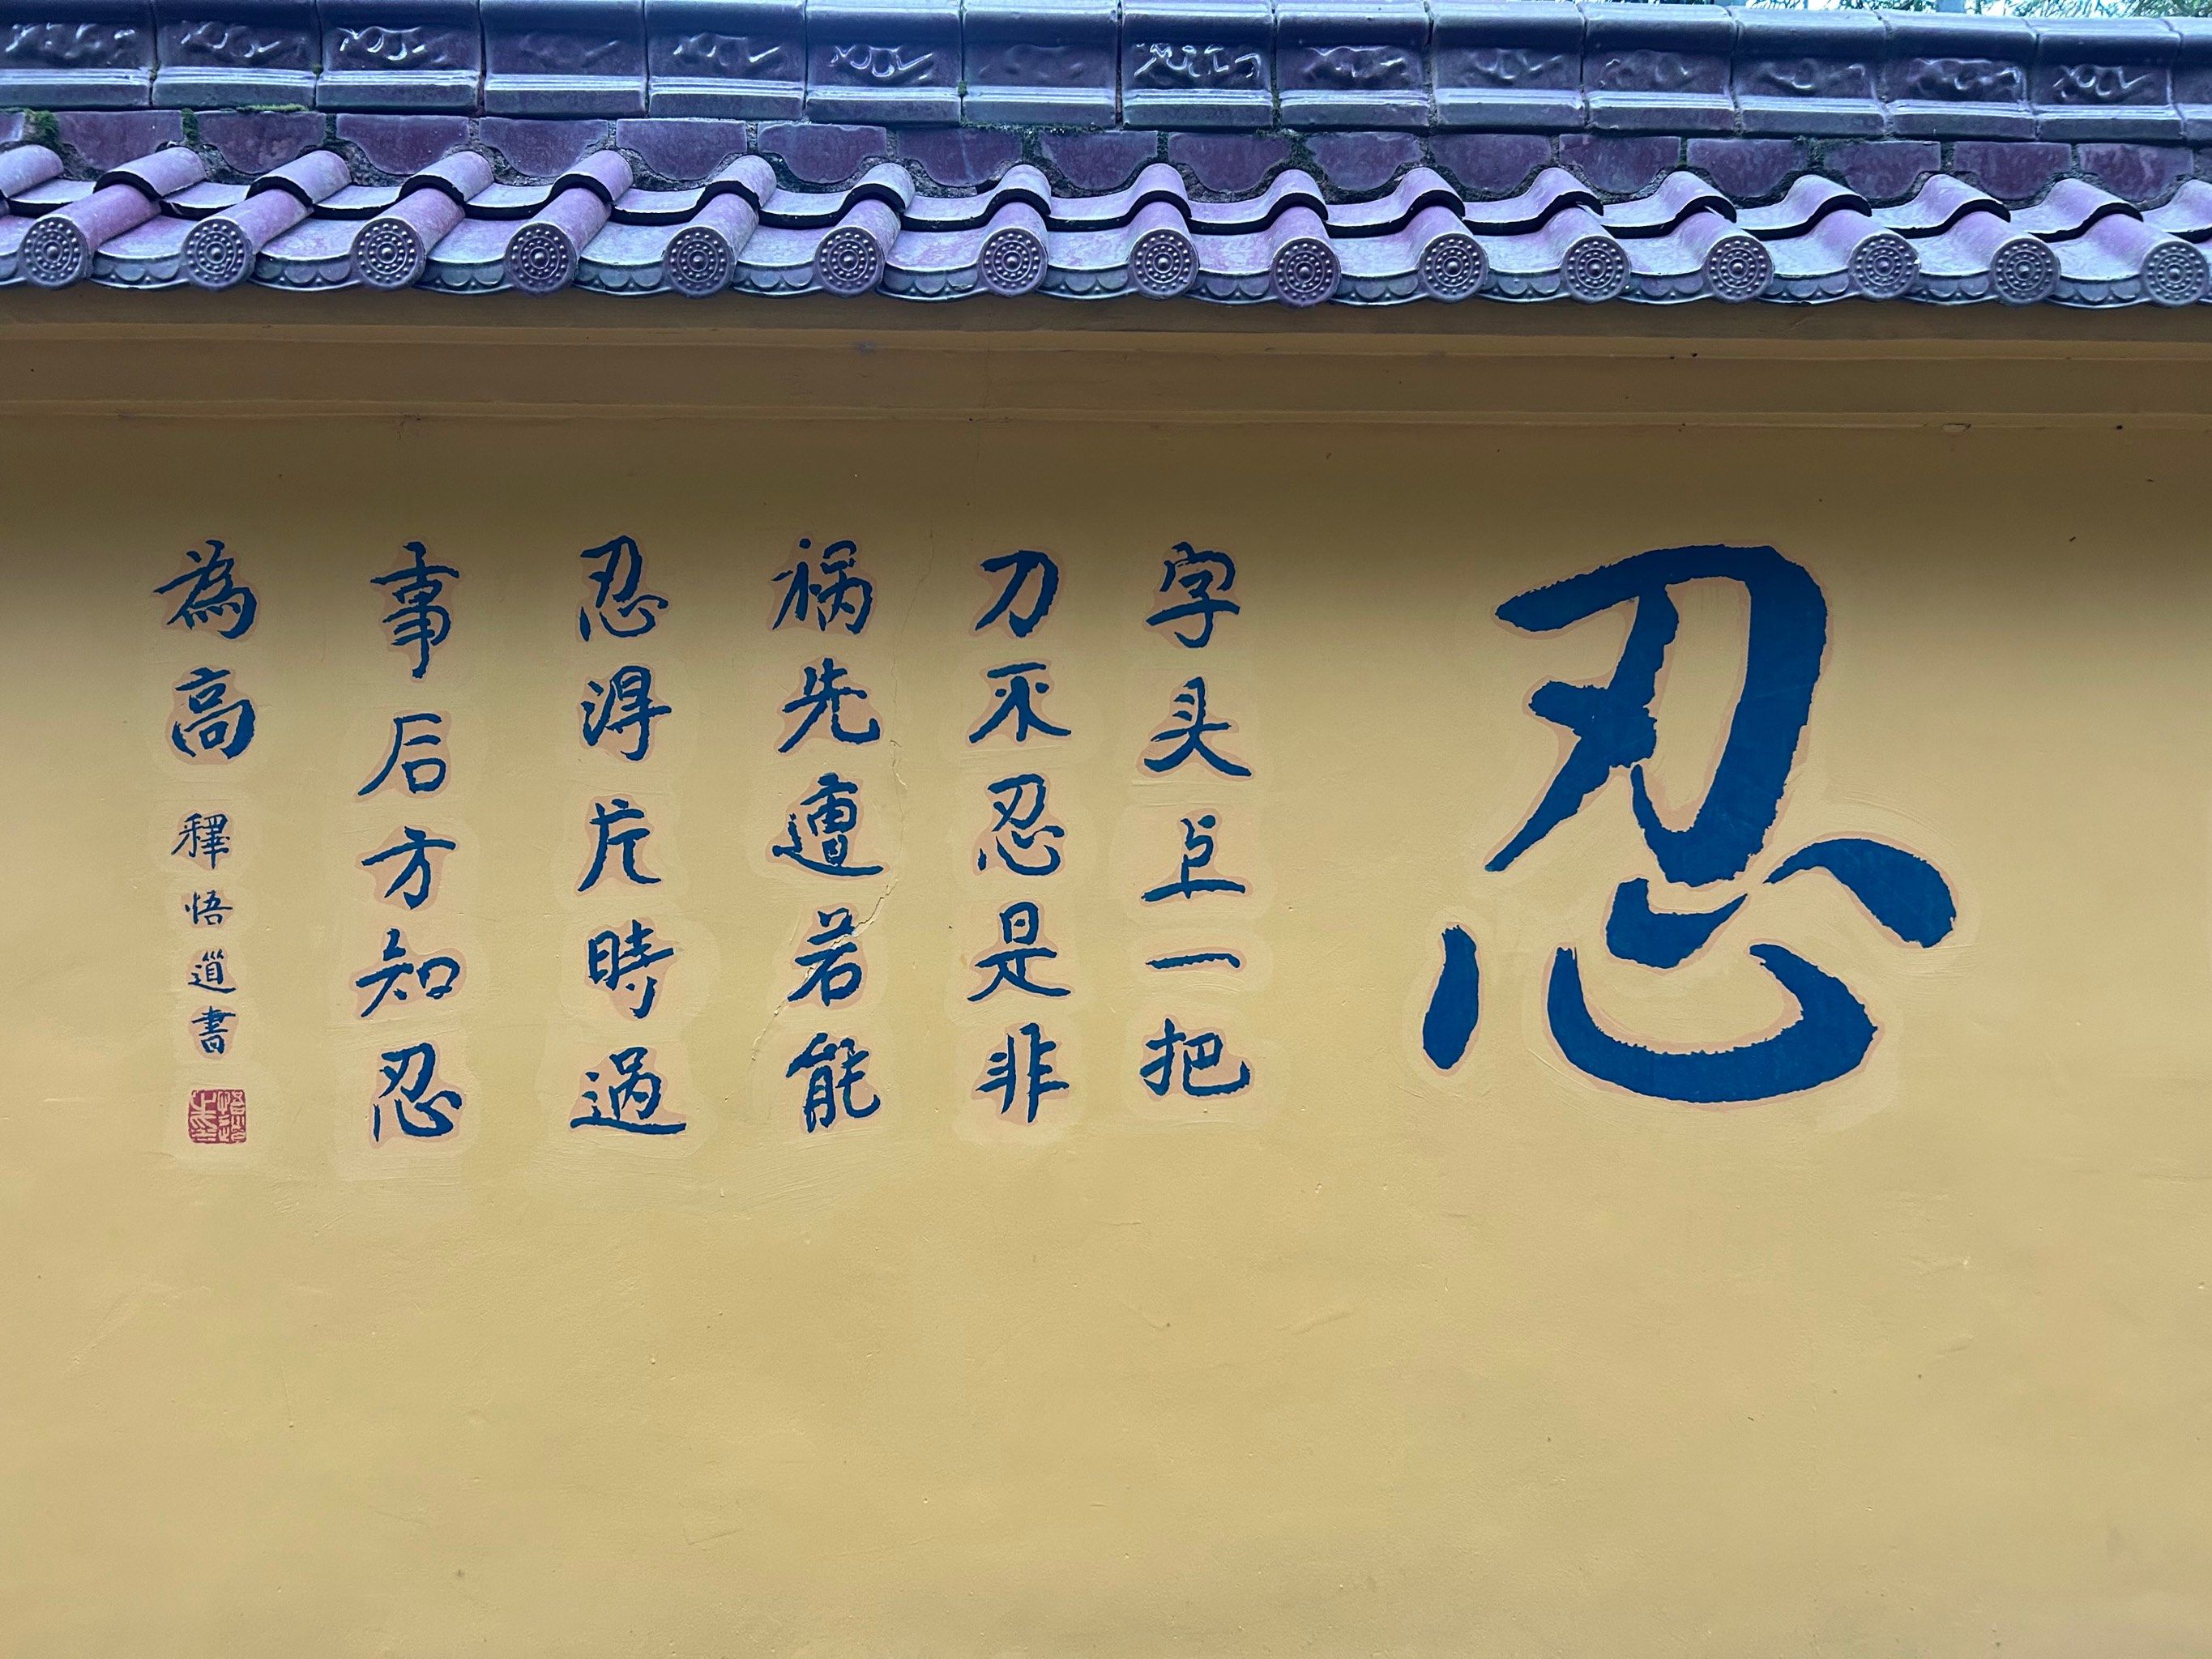 忍
字头上一把
刀不忍是非
祸先遭若能
忍得片時过
事后方知忍
為高
釋悟道書